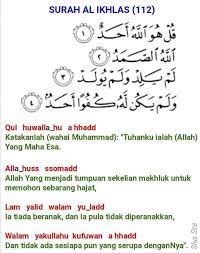 SURAH AL IKHLAS (112)
قُلْ هُوَ اللَّهُ أَحَدٌ ١
اللَّهُ الصَّمَدُ ٢
لَمْ يَلِدْ وَلَمْ يُولَدْ ٣
وَلَمْ يَكُن لَّهُ كُفُوًا أَحَدٌ ٤
Qul huwalla_hu a hhadd
Katakanlah (wahai Muhammad): "Tuhanku ialah (Allah)
Yang Maha Esa.
Alla_huss ssomadd
Allah Yang menjadi tumpuan sekelian makhluk untuk
memohon sebarang hajat,
Lam yalid walam yu_ladd
Ia tiada beranak, dan Ia pula tidak diperanakkan,
Walam yakullahu kufuwan a hhadd
Dan tidak ada sesiapa pun yang serupa denganNya".